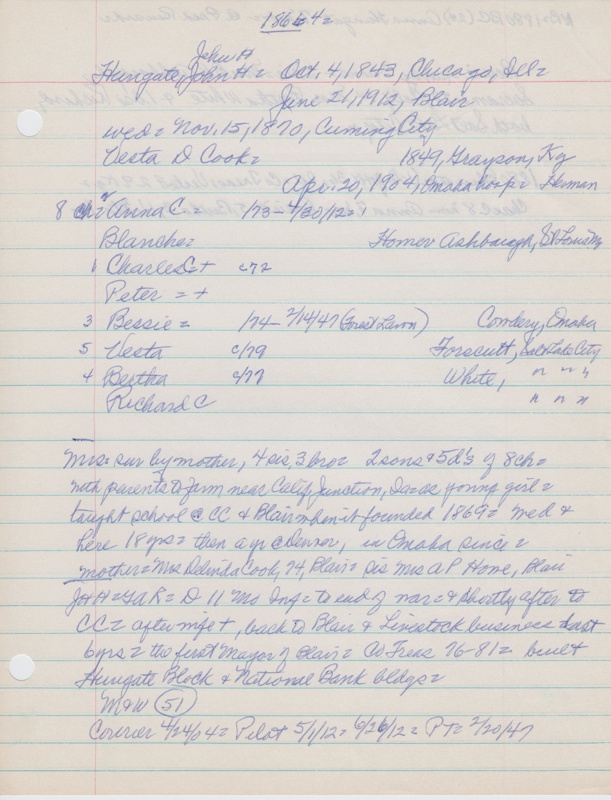 1864=
John H
Hungate, John H= Oct. 4, 1843, Chicago, Ill=
June 21, 1912, Blair
wed= Nov. 15, 1870, Cuming City
Vesta D Cook= 1849, Grayson, Ky
Apr. 20, 1904, Omaha hosp= Herman
8 ch= 2 Anna C= /73-4/30/12=
Blanche= Homer Ashbaugh, St Louis, Mo
1 Charles C=+ c72
Peter =+
3 Bessie= /74-2/14/47 (Forest Lawn) Cowdery, Omaha
5 Vesta c/79 Forscutt, Salt Lake City
4 Bertha c/77 White, " " "
Richard C " " "
Mrs= sur by mother, 4 sis, 3 bro= 2 sons & 5 d's of 8 ch=
with parents to farm near Calif Junction, Ia= as young girl=
taught school @ CC & Blair when it founded 1869= wed &
here 18 yrs= then a yr @ Denver, in Omaha since=
mother= Mrs Delinda Cook, 74, Blair= sis Mrs A P Howe, Blair
JohH= GAR= D 11 Mo Ing= to end of war= & shortly after to
CC= after mge +, back to Blair & Livestock business last
6 yrs= the first Mayor of Blair= Co Treas 76-81= built
Hungate Block & National Bank bldgs=
M&W (51)
Courier 4/24/04= Pilot 5/1/12= 6/26/12= PT= 2/20/47